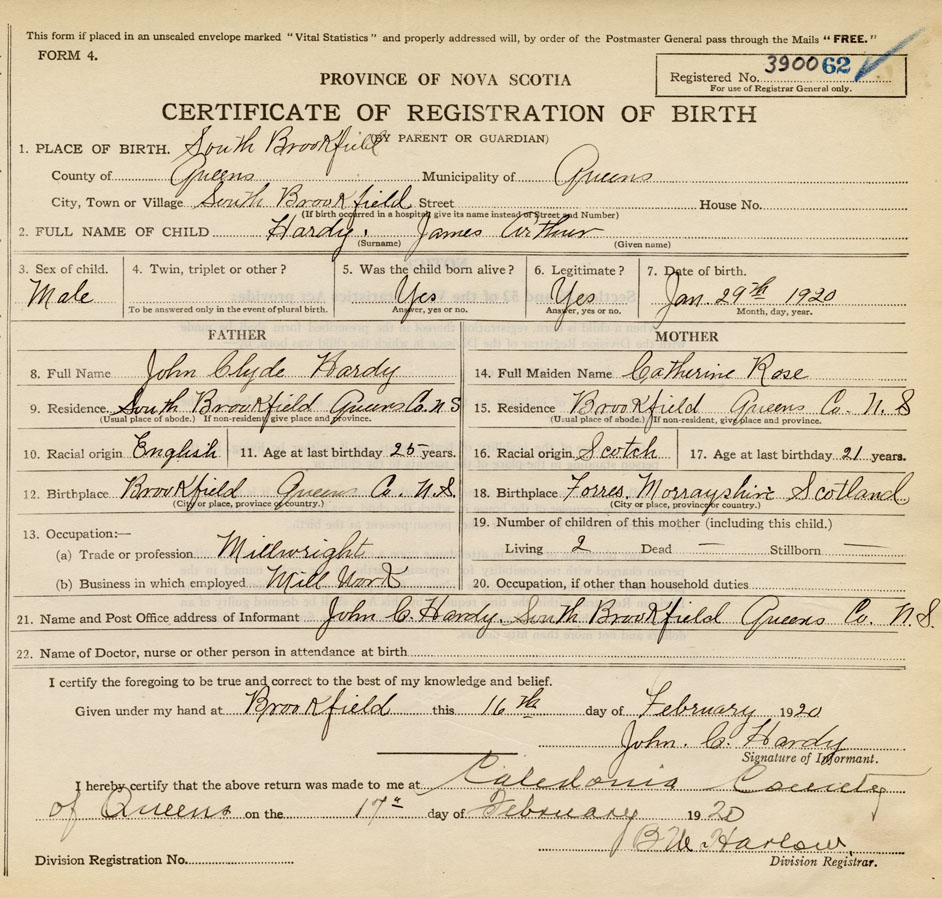 This form if placed in an unsealed envelope marked "Vital Statistics" and properly addressed will, by order of the Postmaster General pass through the Mails "FREE."
FORM 4.
Registered No. 3900 62
For use of Registrar General only.
PROVINCE OF NOVA SCOTIA
CERTIFICATE OF REGISTRATION OF BIRTH
(BY PARENT OR GUARDIAN)
1. PLACE OF BIRTH. South Brookfield
County of Queens Municipality of Queens
City, Town or Village South Brookfield Street House No.
(If birth occurred in a hospital, give its name instead of Street and Number)
2. FULL NAME OF CHILD Hardy, James Arthur
(Surname) (Given name)
3. Sex of child. 4. Twin, triplet or other? 5. Was the child born alive? 6. Legitimate? 7. Date of birth.
Male Yes Yes Jan. 29th 1920
To be answered only in the event of plural birth. Answer, yes or no. Answer, yes or no. Month, day, year.
FATHER MOTHER
8. Full Name John Clyde Hardy 14. Full Maiden Name Catherine Rose
9. Residence. South Brookfield Queens Co. N S 15. Residence Brookfield Queens Co. N. S
(Usual place of abode.) If non-resident, give place and province. (Usual place of abode.) If non-resident, give place and province.
10. Racial origin English 11. Age at last birthday 25 years. 16. Racial origin Scotch 17. Age at last birthday 21 years.
12. Birthplace Brookfield Queens Co. N. S. 18. Birthplace Forres, Morrayshire Scotland
(City or place, province or country.) (City or place, province or country.)
13. Occupation:— 19. Number of children of this mother (including this child.)
(a) Trade or profession Millwright Living 2 Dead — Stillborn —
(b) Business in which employed Mill Work 20. Occupation, if other than household duties
21. Name and Post Office address of Informant John C. Hardy. South Brookfield Queens Co. N.S.
22. Name of Doctor, nurse or other person in attendance at birth
I certify the foregoing to be true and correct to the best of my knowledge and belief.
Given under my hand at Brookfield this 16th day of February 1920
John. C. Hardy
Signature of Informant.
I hereby certify that the above return was made to me at Caledonia County
of Queens on the 17th day of February 1920
Harlow
Division Registration No. Division Registrar.